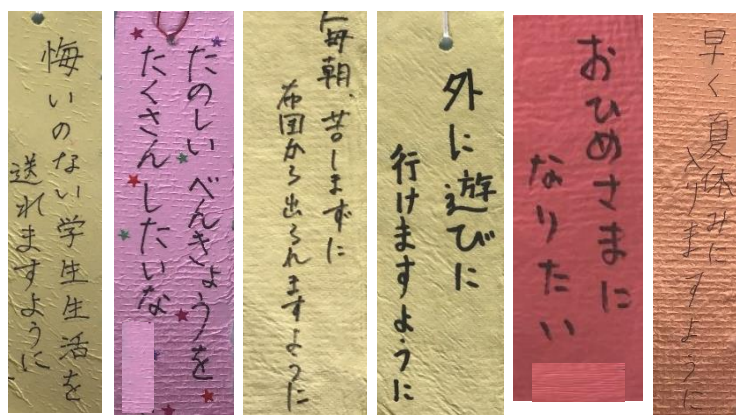 悔いのない学生生活を
送れますように
たのしい べんきょうを
たくさん したいな
毎朝、苦しまずに
布団から出られますように
外に遊びに
行けますように
おひめさまに
なりたい
早く夏休みに
入りますように